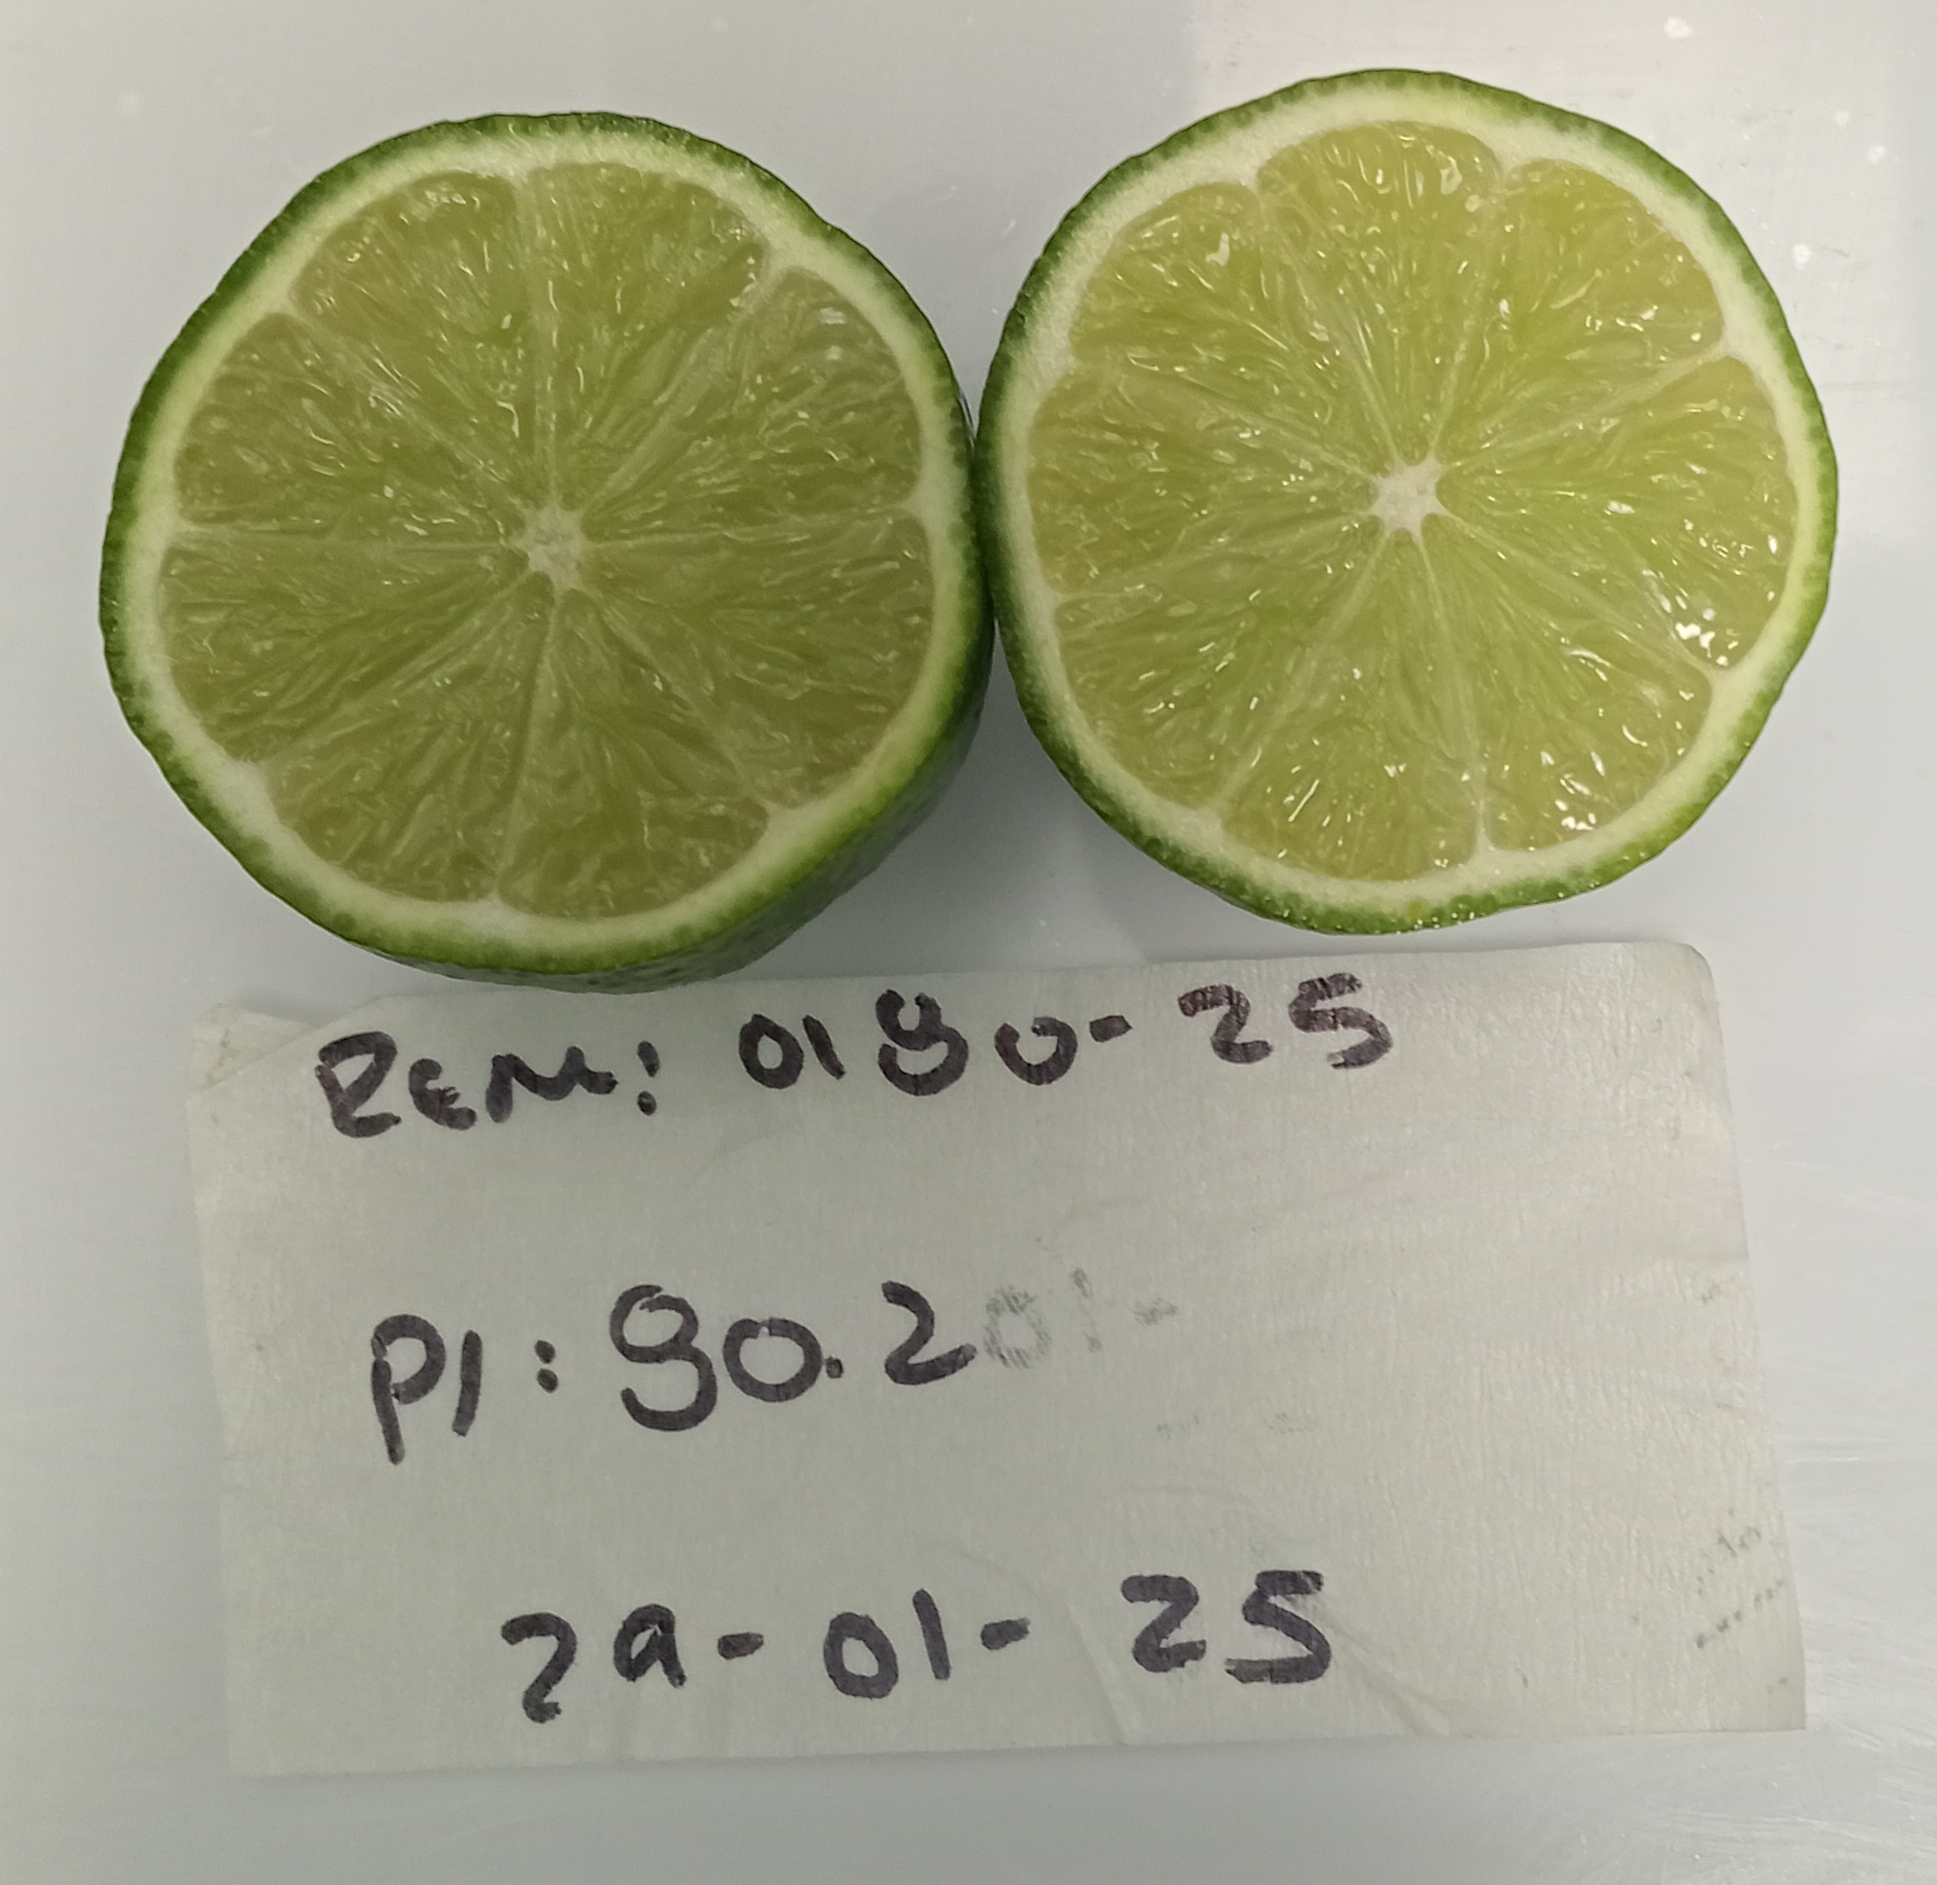 Rem: 0180-25
P1: 80.2 01-
29-01-25